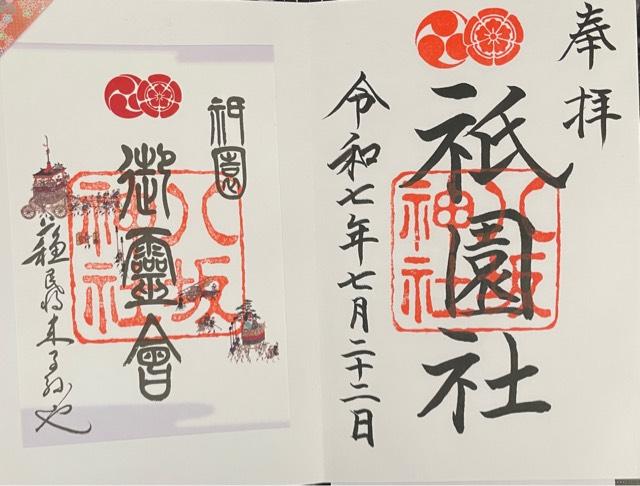 奉拝
祇園社
八坂神社
令和七年七月二十二日
祇園
御靈會
八坂神社
蘇民将来子孫也